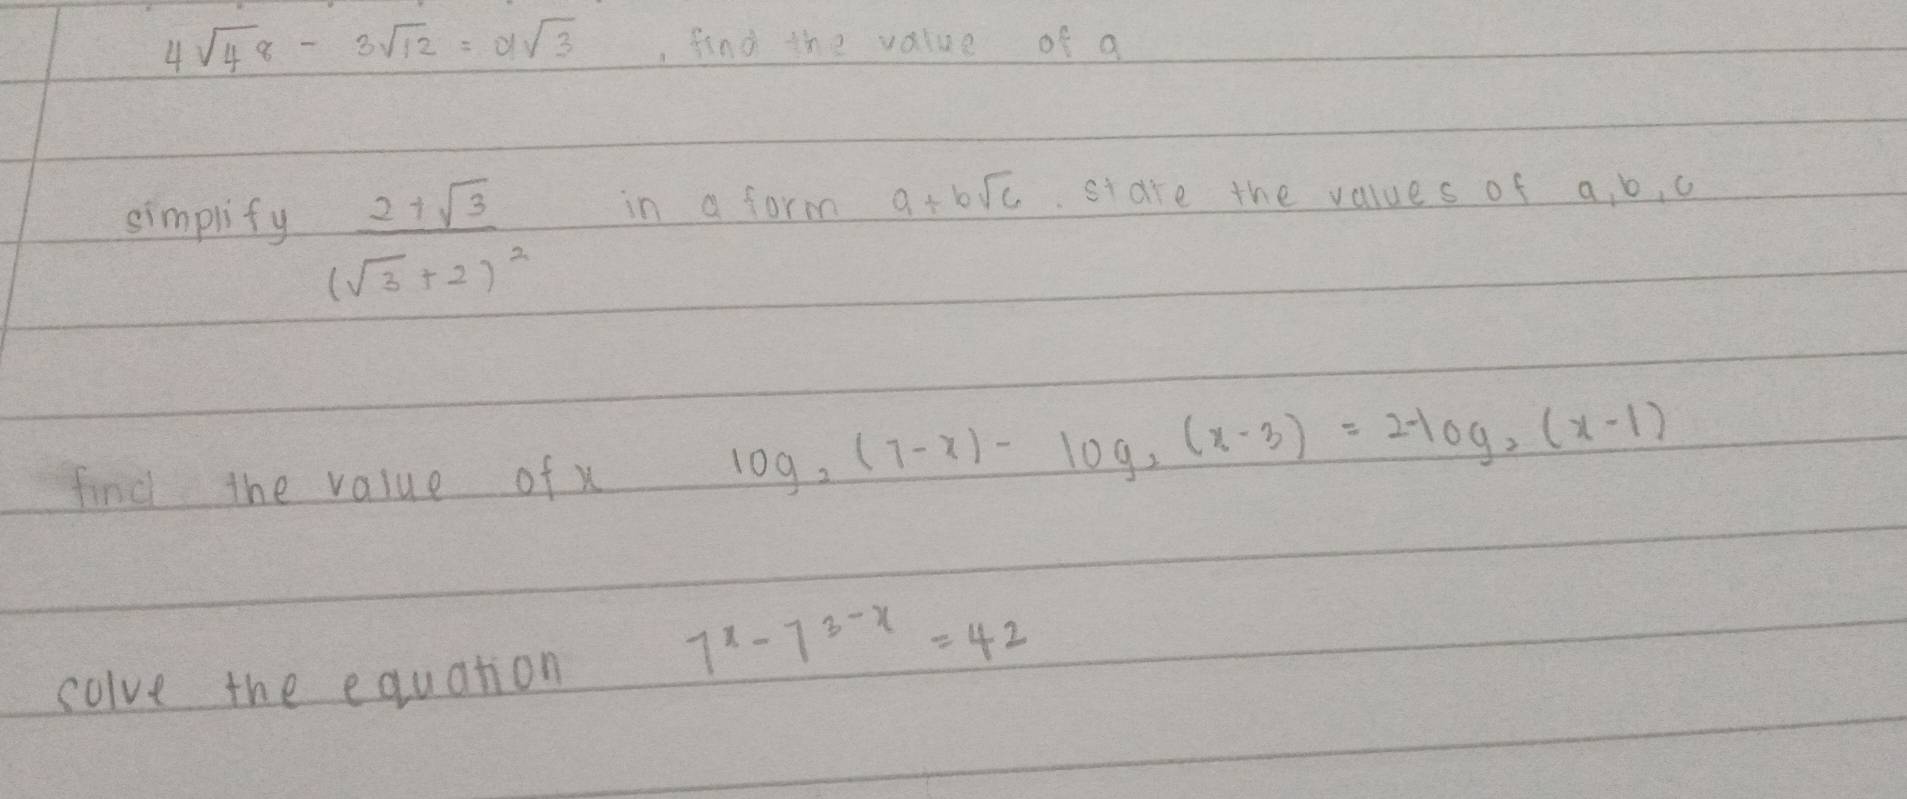 4√48 - 3√12 = a√3 , find the value of a
simplify (2+√3)/(√3+2)² in a form a+b√c. state the values of a,b,c
find the value of x log₂(7-x) - log₂(x-3) = 2-log₂(x-1)
solve the equation 7ˣ - 7³⁻ˣ = 42